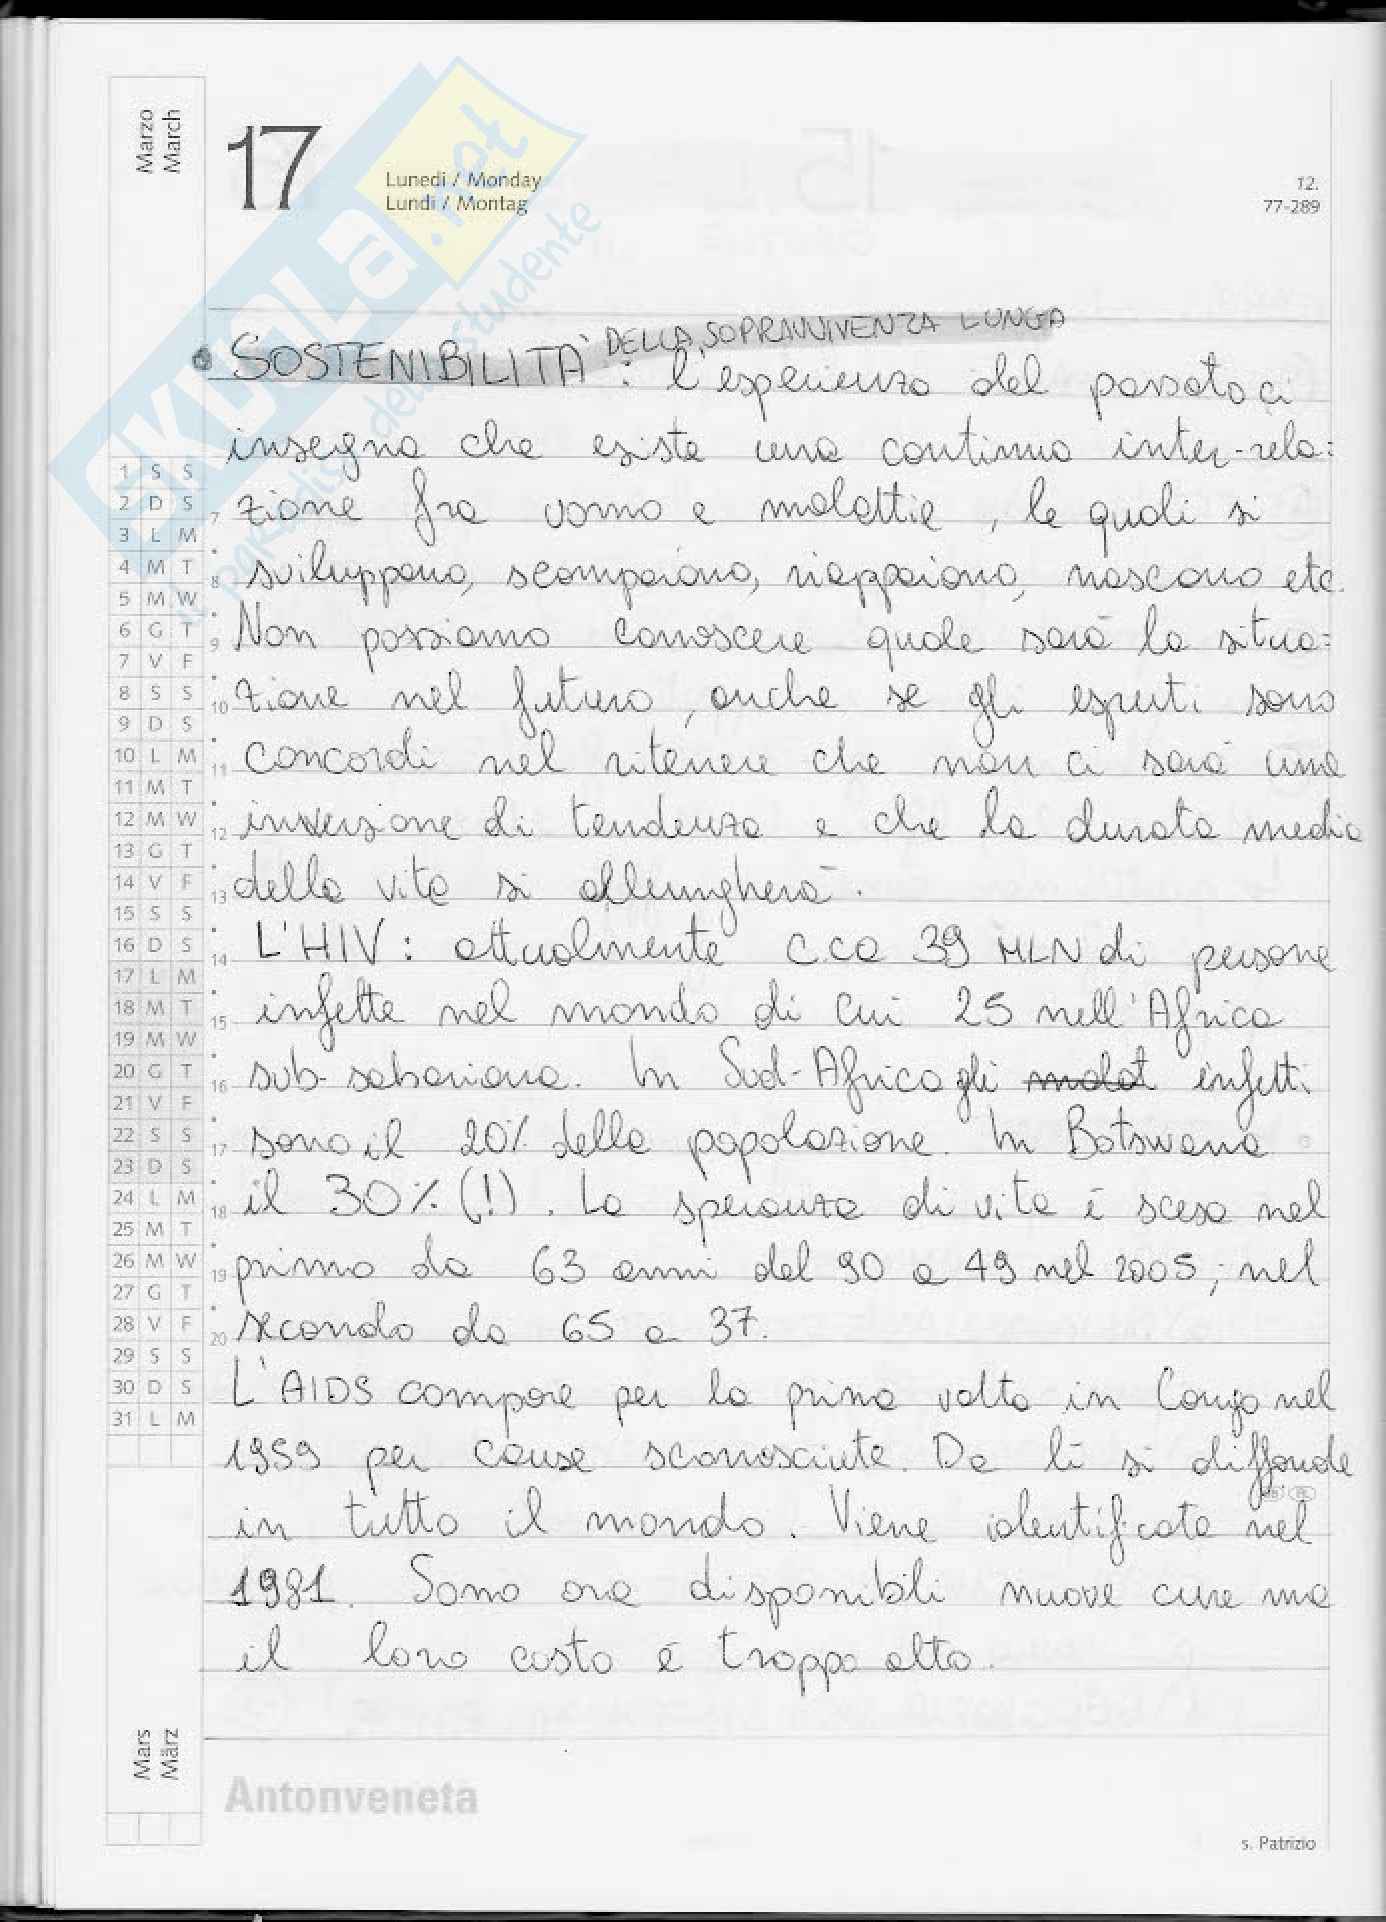 Marzo
March
17
Lunedi / Monday
Lundi / Montag
12.
77-289
SKUOLA.net
il paradiso dello studente
SOSTENIBILITÀ DELLA SOPRAVVIVENZA LUNGA
: l'esperienza del passato ci
insegna che esiste una continua inter-rela=
zione fra uomo e malattie, le quali si
sviluppano, scompaiono, riappaiono, nascono etc.
Non possiamo conoscere quale sarà la situa=
zione nel futuro, anche se gli esperti sono
concordi nel ritenere che non ci sarà una
inversione di tendenza e che la durata media
della vita si allungherà.
L'HIV: attualmente c.ca 39 MLN di persone
infette nel mondo di cui 25 nell'Africa
sub-sahariana. In Sud-Africa gli malat infetti
sono il 20% della popolazione. In Botswana
il 30% (!). La speranza di vita è scesa nel
primo da 63 anni del 90 a 49 nel 2005; nel
secondo da 65 a 37.
L'AIDS compare per la prima volta in Congo nel
1959 per cause sconosciute. Da lì si diffonde
in tutto il mondo. Viene identificata nel
1981. Sono ora disponibili nuove cure ma
il loro costo è troppo alto.
1 S S
2 D S
3 L M
4 M T
5 M W
6 G T
7 V F
8 S S
9 D S
10 L M
11 M T
12 M W
13 G T
14 V F
15 S S
16 D S
17 L M
18 M T
19 M W
20 G T
21 V F
22 S S
23 D S
24 L M
25 M T
26 M W
27 G T
28 V F
29 S S
30 D S
31 L M
7
8
9
10
11
12
13
14
15
16
17
18
19
20
Mars
März
Antonveneta
s. Patrizio